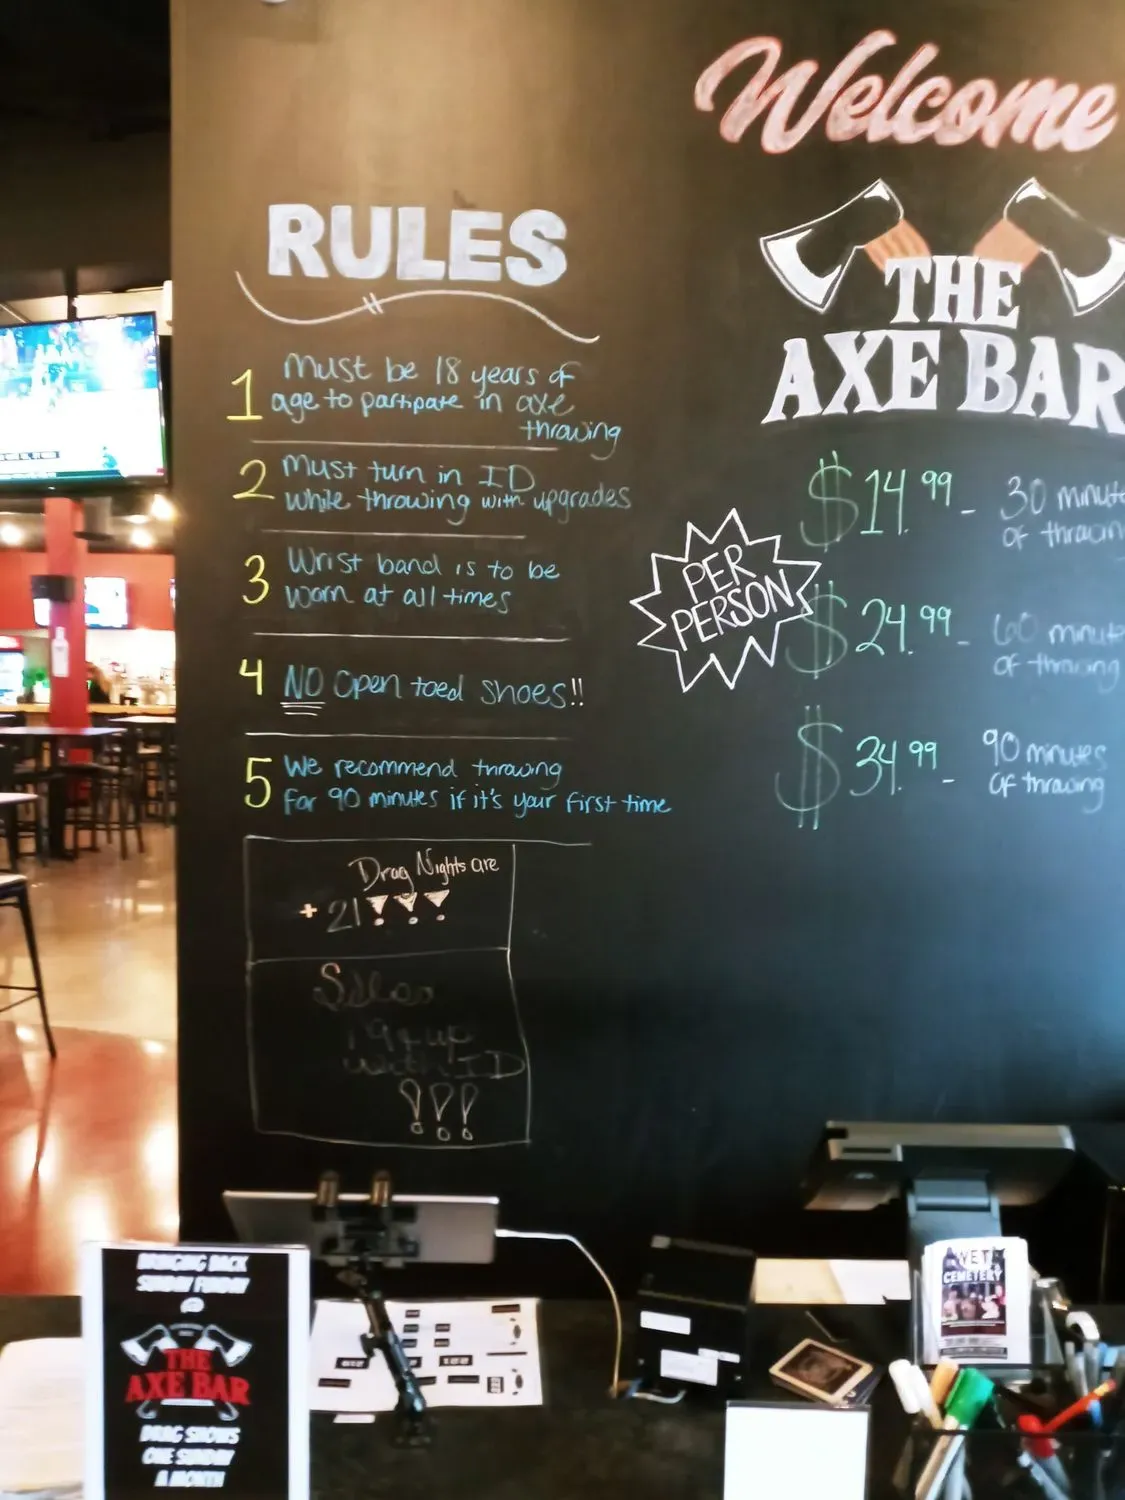 Welcome
THE
AXE BAR
RULES
1 Must be 18 years of
age to partipate in axe
throwing
2 Must turn in ID
while throwing with upgrades
3 Wrist band is to be
worn at all times
4 NO Open toed shoes!!
5 We recommend throwing
for 90 minutes if it's your first time
Drag Nights are
+21 !!!
with ID
!!!
PER
PERSON
$14.99 - 30 minute
of throwing
$24.99 - 60 minut
of throwing
$34.99 - 90 minutes
of throwing
BRINGING BACK
SUNDAY FUNDAY
@
THE
AXE BAR
DRAG SHOWS
ONE SUNDAY
A MONTH
CEMETERY